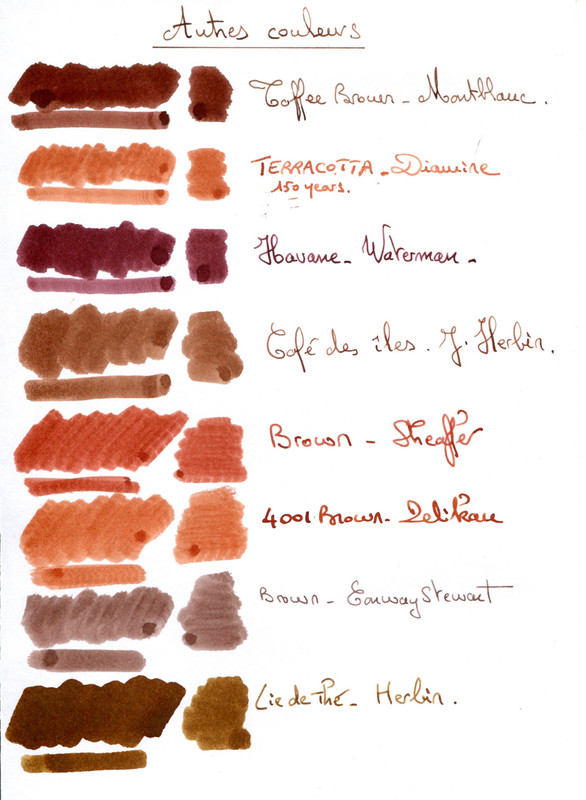 Autres couleurs
Toffee Brown - Montblanc.
TERRACOTTA - Diamine
150 years.
Havane - Waterman -
Café des îles. J. Herbin.
Brown - Sheaffer
4001 Brown - Pelikan
Brown - Conway Stewart
Lie de Thé - Herbin.